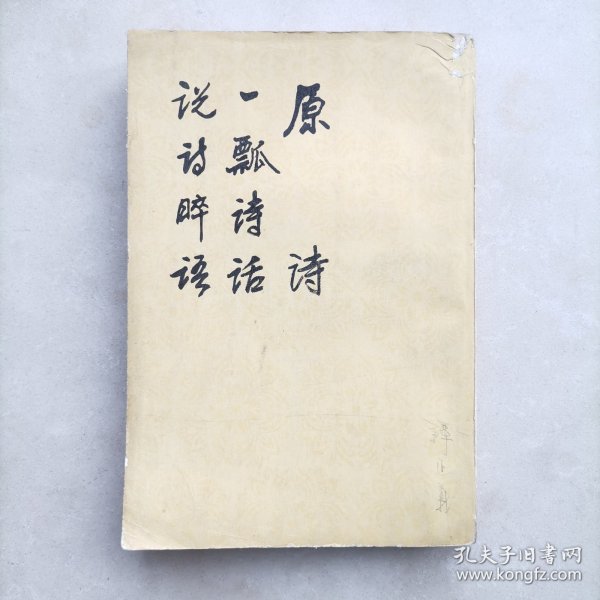 原诗
一瓢诗话
说诗晬语
孔夫子旧书网
www.kongfz.com